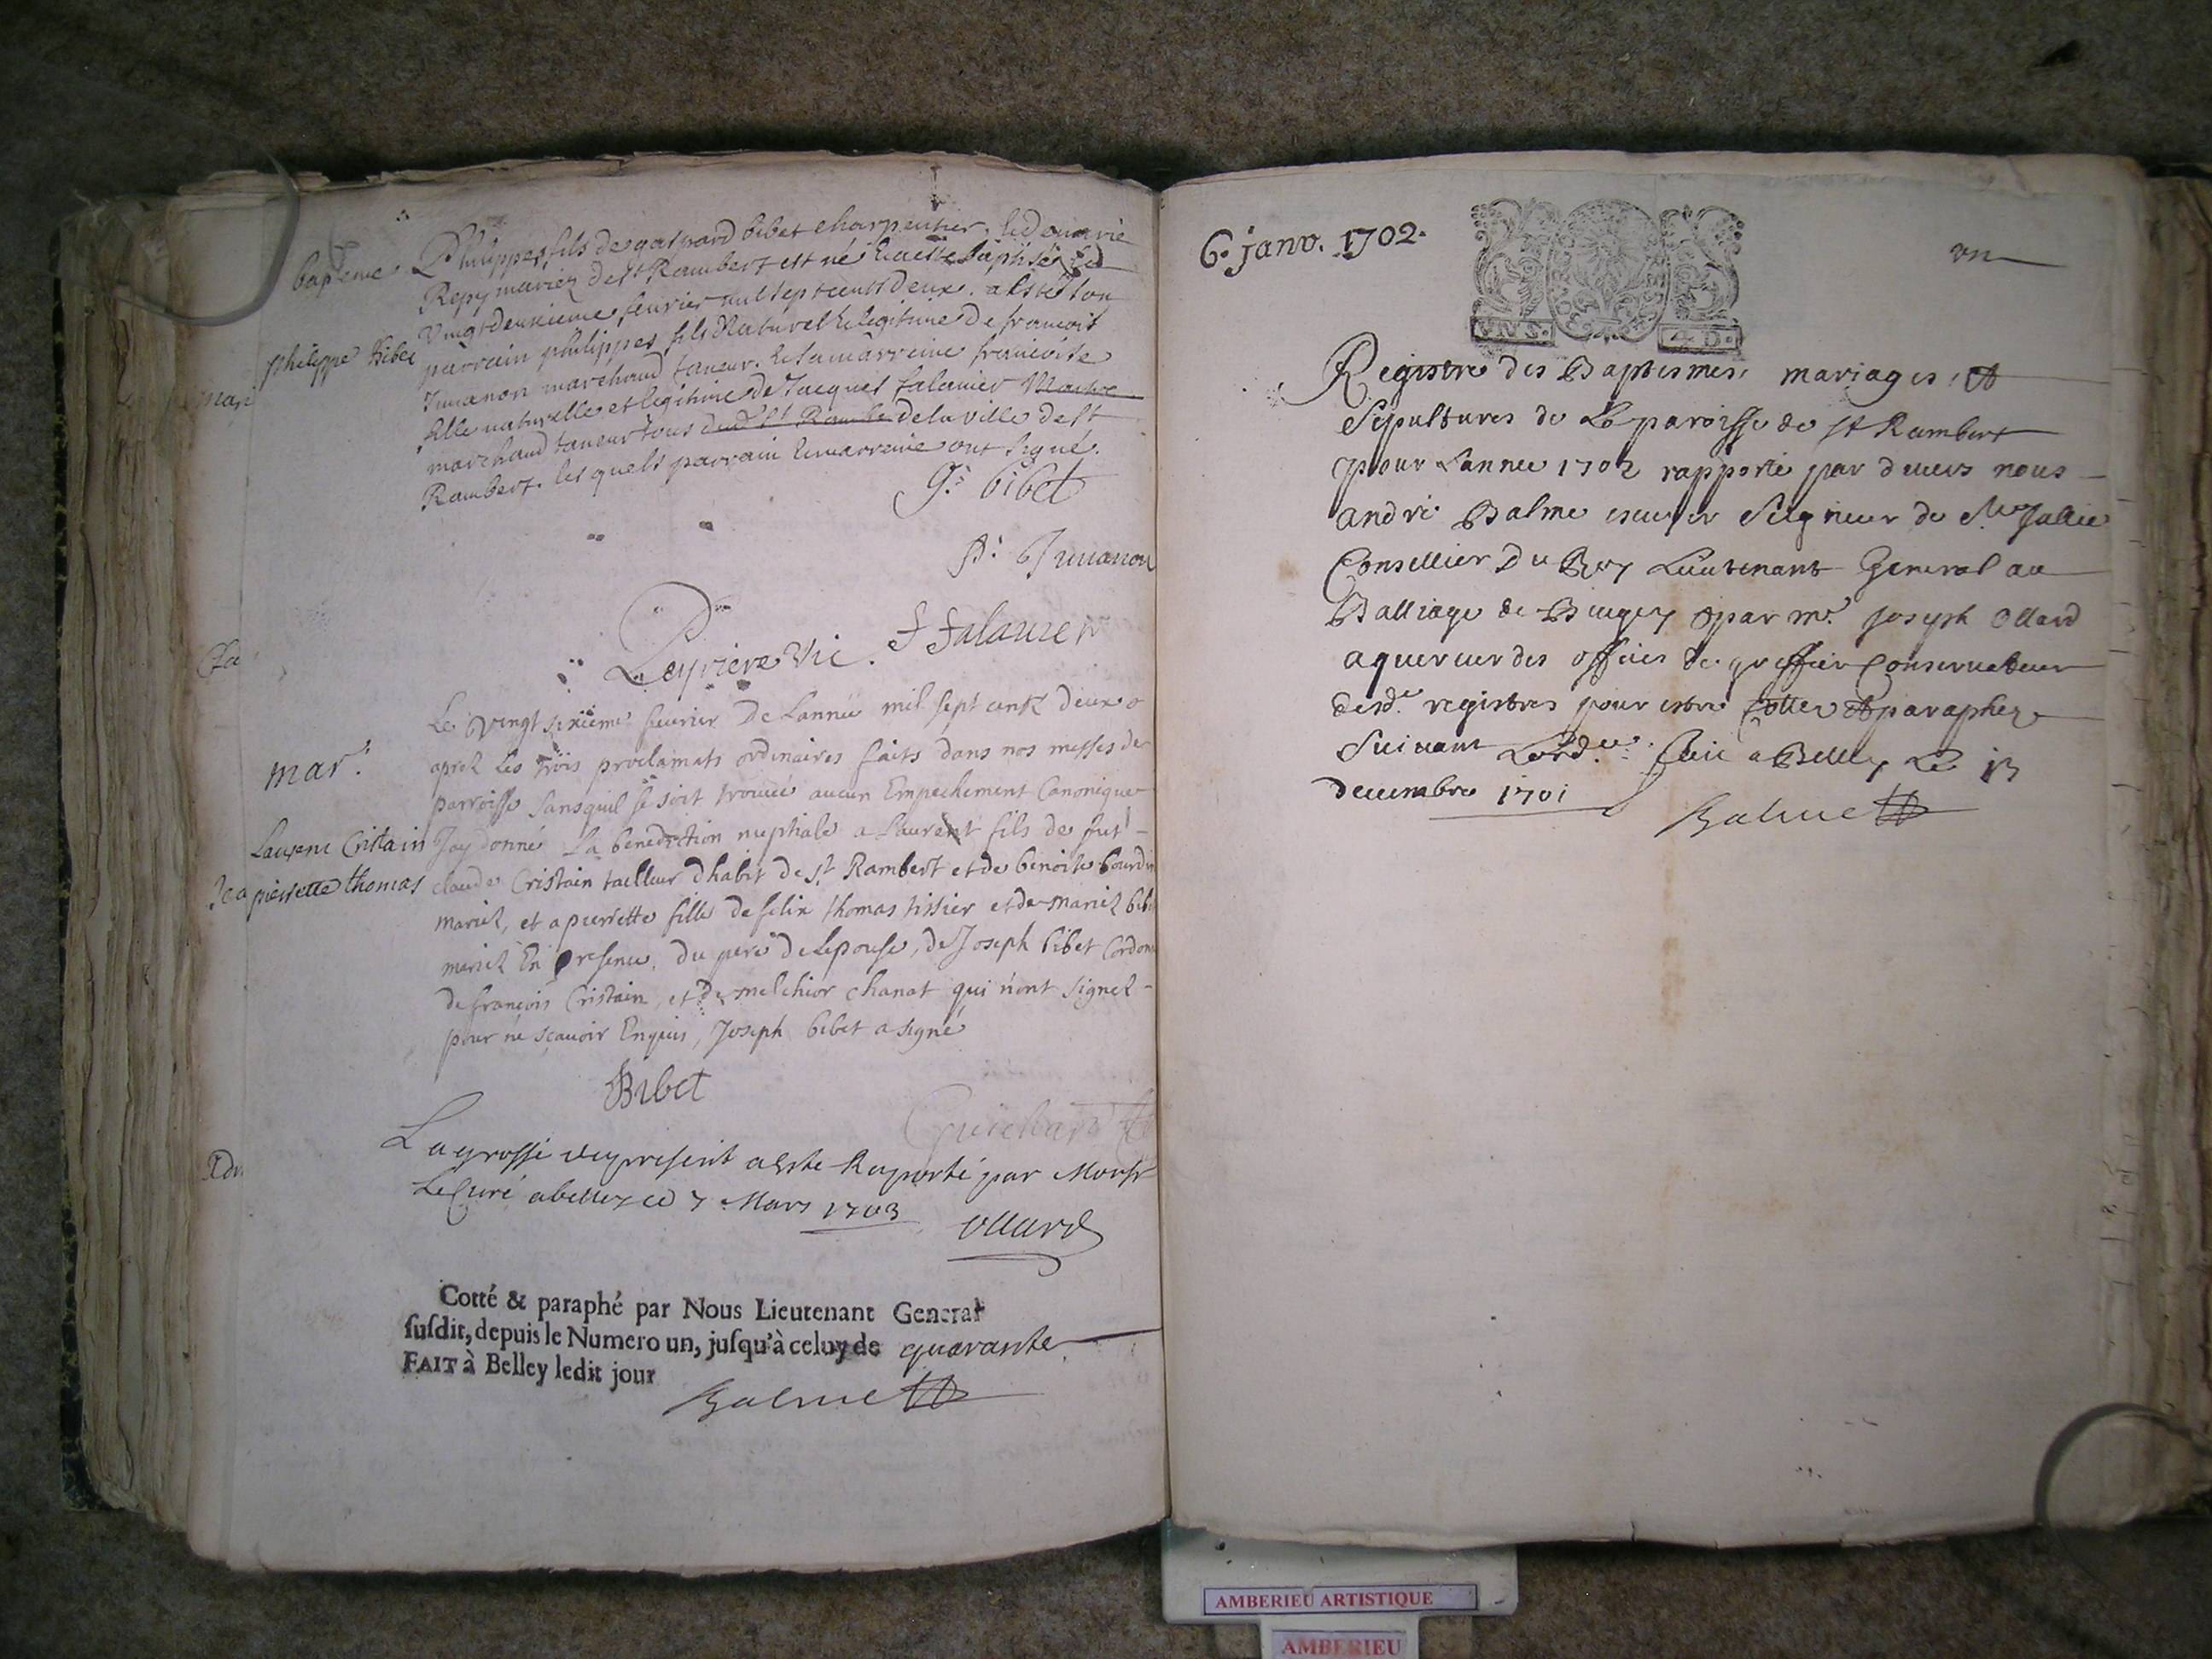 bapteme
Philippe Bibet
Philippes fils de gaspard bibet charpentier, & de marie
Repy mariez de st Rambert est né & a esté baptisé le
vingt deuxieme feurier mil sept cents deux. a esté son
parrain philippes fils Naturel & legitime de francois
Juuanon marchand taneur. & la marreine francoise
fille naturelle et legitime de Jacques falauier
marchand taneur tous dud st Rambe de la ville de st
Rambert. les quels parrain & marreine ont signé.
g. bibet
p. Juuanon
f falauier
Leypiere Vic.
mar.
Laurent Cristain
& a pierrette thomas
Le vingt sixieme feurier De Lannée mil sept cents deux
aprez les trois proclamats ordinaires faits dans nos messes de
parroisse sans quil se soit trouué aucun Empechement Canonique
Jay donné La benediction nuptiale a Laurent fils de fut
claude Cristain tailleur dhabit de st Rambert et de benoite bourdin
mariez, et a pierrette fille de felix thomas tissier et de
mariez En presence. du pere de Lepouse, de Joseph bibet Cordon
de francois Cristain, et de melchior chanat qui nont signez
pour ne sçauoir Enquis, Joseph bibet a signé
Bibet
Guichard
La grosse du present a este Raporté par Monsr
Le Curé a belley ce 7 Mars 1703
Ollard
Cotté & paraphé par Nous Lieutenant General
susdit, depuis le Numero un, jusqu'à celuy de quarante
FAIT à Belley ledit jour
Balme
6. janv. 1702.
un
Registre des Baptesmes, mariages, et
Sepultures de La paroisse de st Rambert
pour Lannee 1702 rapporté par deuers nous
andré Balme escuyer Seigneur de
Consellier Du Roy Lieutenant General au
Balliage de Bugey par mr. Joseph Ollard
aquereur des offices de greffier Conseruateur
desd. registres pour estre Cottez et paraphez
Suiuant Lord.ce faict a Belley Le 13
decembre 1701
Balme
AMBERIEU ARTISTIQUE
AMBERIEU